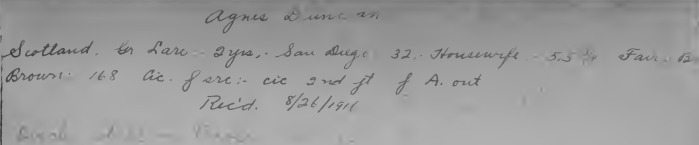 Agnes Duncan
Scotland. Gr Larc - 2 yrs. - San Diego 32. - Housewife - 5.5 3/4 Fair. B
Brown: 168 Cic. f arc:- cic 2nd ft f A. out
Rec'd. 8/26/1911